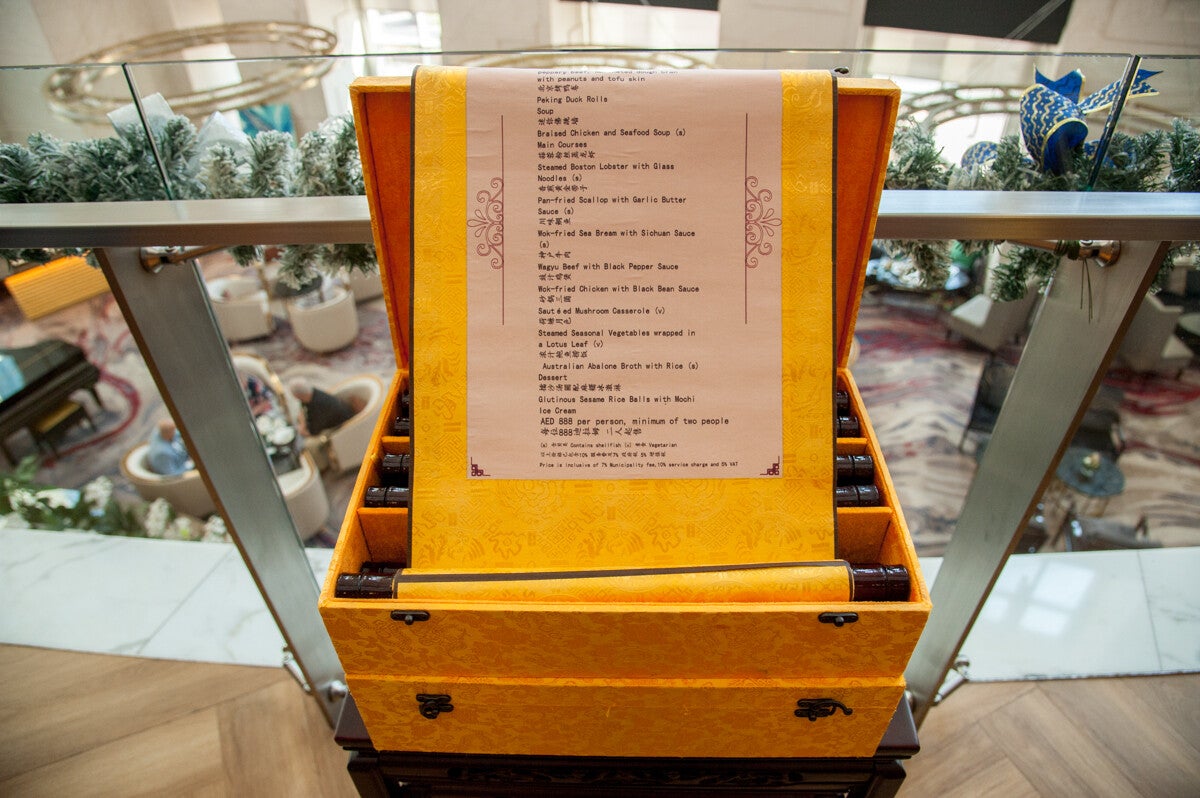 with peanuts and tofu skin
北京烤鸭卷
Peking Duck Rolls
Soup
迷你佛跳墙
Braised Chicken and Seafood Soup (s)
Main Courses
Steamed Boston Lobster with Glass
Noodles (s)
Pan-fried Scallop with Garlic Butter
Sauce (s)
川味鲷鱼
Wok-fried Sea Bream with Sichuan Sauce
(s)
神户牛肉
Wagyu Beef with Black Pepper Sauce
豉汁鸡煲
Wok-fried Chicken with Black Bean Sauce
砂锅三菌
Sautéed Mushroom Casserole (v)
荷塘月色
Steamed Seasonal Vegetables wrapped in
a Lotus Leaf (v)
浓汁鲍鱼捞饭
Australian Abalone Broth with Rice (s)
Dessert
Glutinous Sesame Rice Balls with Mochi
Ice Cream
AED 888 per person, minimum of two people
每位888迪拉姆 二人起售
Contains shellfish (v) 素食 Vegetarian
Price is inclusive of 7% Municipality fee,10% service charge and 5% VAT